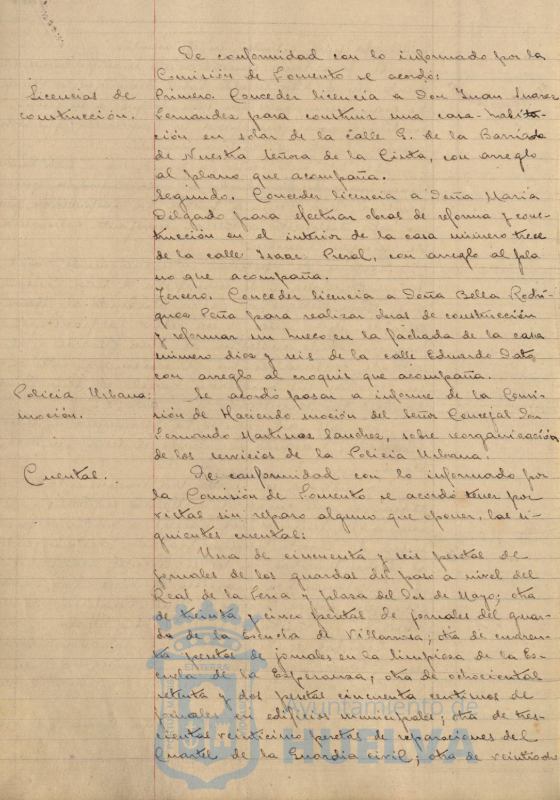 De conformidad con lo informado por la
Comisión de Fomento se acordó:
Licencias de
construcción.
Primero. Conceder licencia a Don Juan Suarez
Fernandez para construir una casa-habita-
ción en solar de la calle G. de la Barriada
de Nuestra Señora de la Cinta, con arreglo
al plano que acompaña.
Segundo. Conceder licencia a Doña Maria
Delgado para efectuar obras de reforma y cons-
trucción en el interior de la casa número trece
de la calle Isaac Peral, con arreglo al pla
no que acompaña.
Tercero. Conceder licencia a Doña Bella Rodri-
guez Peña para realizar obras de construcción
y reformar un hueco en la fachada de la casa
número diez y seis de la calle Eduardo Dato,
con arreglo al croquis que acompaña.
Policia Urbana:
moción.
Se acordó pasar a informe de la Comi-
sión de Hacienda moción del Señor Concejal Don
Fernando Martinez Sanchez, sobre reorganización
de los servicios de la Policia Urbana.
Cuentas.
De conformidad con lo informado por
la Comisión de Fomento se acordó tener por
vistas sin reparo alguno que oponer, las si-
guientes cuentas:
Una de cincuenta y seis pesetas de
jornales de los guardas del paso a nivel del
Real de la Feria y plaza del Dos de Mayo; otra
de treinta y cinco pesetas de jornales del guar-
da de la Escuela de Villarrosa; otra de cuaren-
ta pesetas de jornales en la limpieza de la Es-
cuela de la Esperanza; otra de ochocientas
setenta y dos pesetas cincuenta centimos de
jornales en edificios municipales; otra de tres-
cientas veinticinco pesetas de reparaciones del
Cuartel de la Guardia civil; otra de veintiocho
Ayuntamiento de
HUELVA